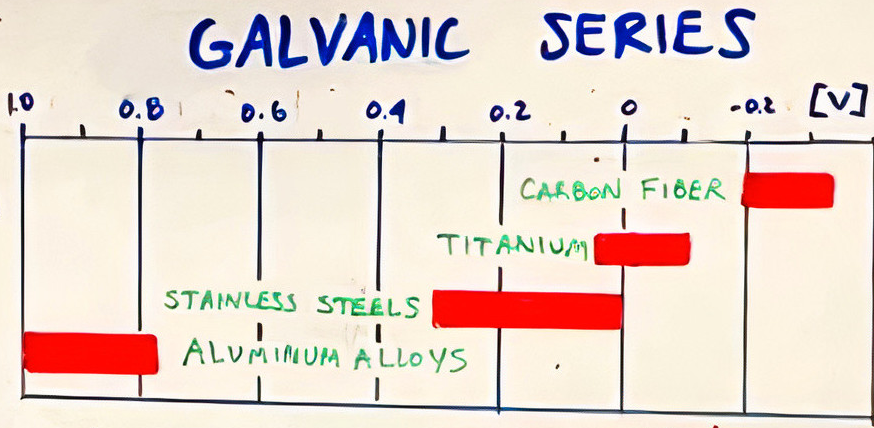 GALVANIC SERIES
1.0 0.8 0.6 0.4 0.2 0 -0.2 [V]
CARBON FIBER
TITANIUM
STAINLESS STEELS
ALUMINUM ALLOYS